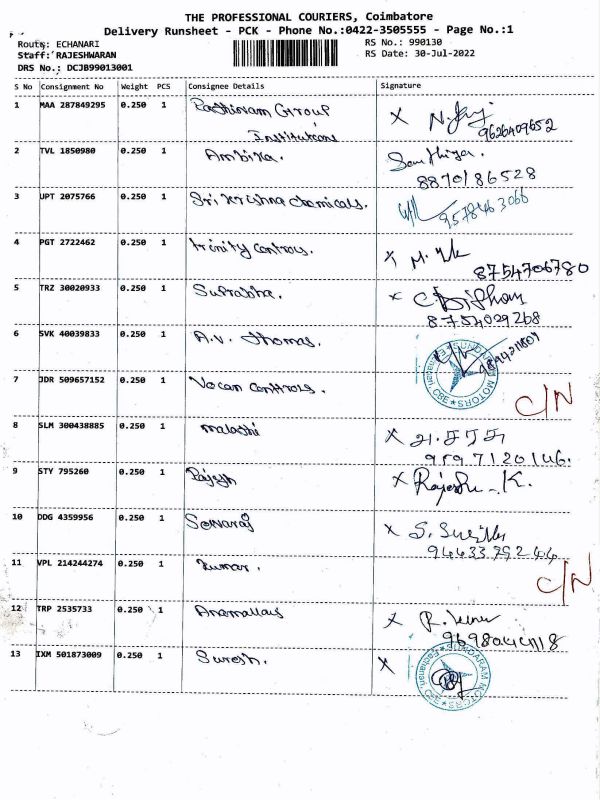 THE PROFESSIONAL COURIERS, Coimbatore
Delivery Runsheet - PCK - Phone No.:0422-3505555 - Page No.:1
Route: ECHANARI
RS No.: 990130
Staff: RAJESHWARAN
RS Date: 30-Jul-2022
DRS No.: DCJB99013001
S No Consignment No Weight PCS Consignee Details Signature
1 MAA 287849295 0.250 1 Group
Institutions
9626409652
2 TVL 1850980 0.250 1 Ambika.
8870186528
3 UPT 2075766 0.250 1 Sri Krishna Chemicals.
9578463066
4 PGT 2722462 0.250 1 trinity controls.
8754706780
5 TRZ 30020933 0.250 1 Suprabha.
8754029268
6 SVK 40039833 0.250 1 A.V. Thomas.
SUNDARAM MOTORS
Eachanari, CBE
7 JDR 509657152 0.250 1 Vocan Controls. C/N
8 SLM 300438885 0.250 1 malathi
9597120146.
9 STY 795260 0.250 1 Rajesh Rajesh K.
10 DDG 4359956 0.250 1 Selvaraj
11 VPL 214244274 0.250 1 Kumar. C/N
12 TRP 2535733 0.250 1 Anamallais
13 IXM 501873009 0.250 1 Suresh.
SUNDARAM MOTORS
Eachanari, CBE